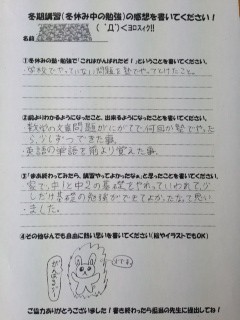 冬期講習(冬休み中の勉強)の感想を書いてください!
(´Д`)<ヨロスィク!!
名前
①冬休みの塾・勉強で「これはがんばれたぞ!」ということを書いてください。
学校でやっていない問題を塾でやってけたこと。
②前よりわかるようになったこと、出来るようになったことを書いてください。
数学の文章問題がにがてで何回か塾でやったら、少しずつできた事。
・英語の単語を前より覚えた事。
③「まあ終わってみたら、講習やってよかったなぁ」と思ったことを書いてください。
塾で、中1と中2の基礎をやれっていわれて、少
しだけ基礎の勉強ができてよかったなって思い
ました。
④その他なんでも自由に熱い思いを書いてください(絵やイラストでもOK)
がんばるぞー!
ご協力ありがとうございました!書き終わったら担当の先生に提出してね!